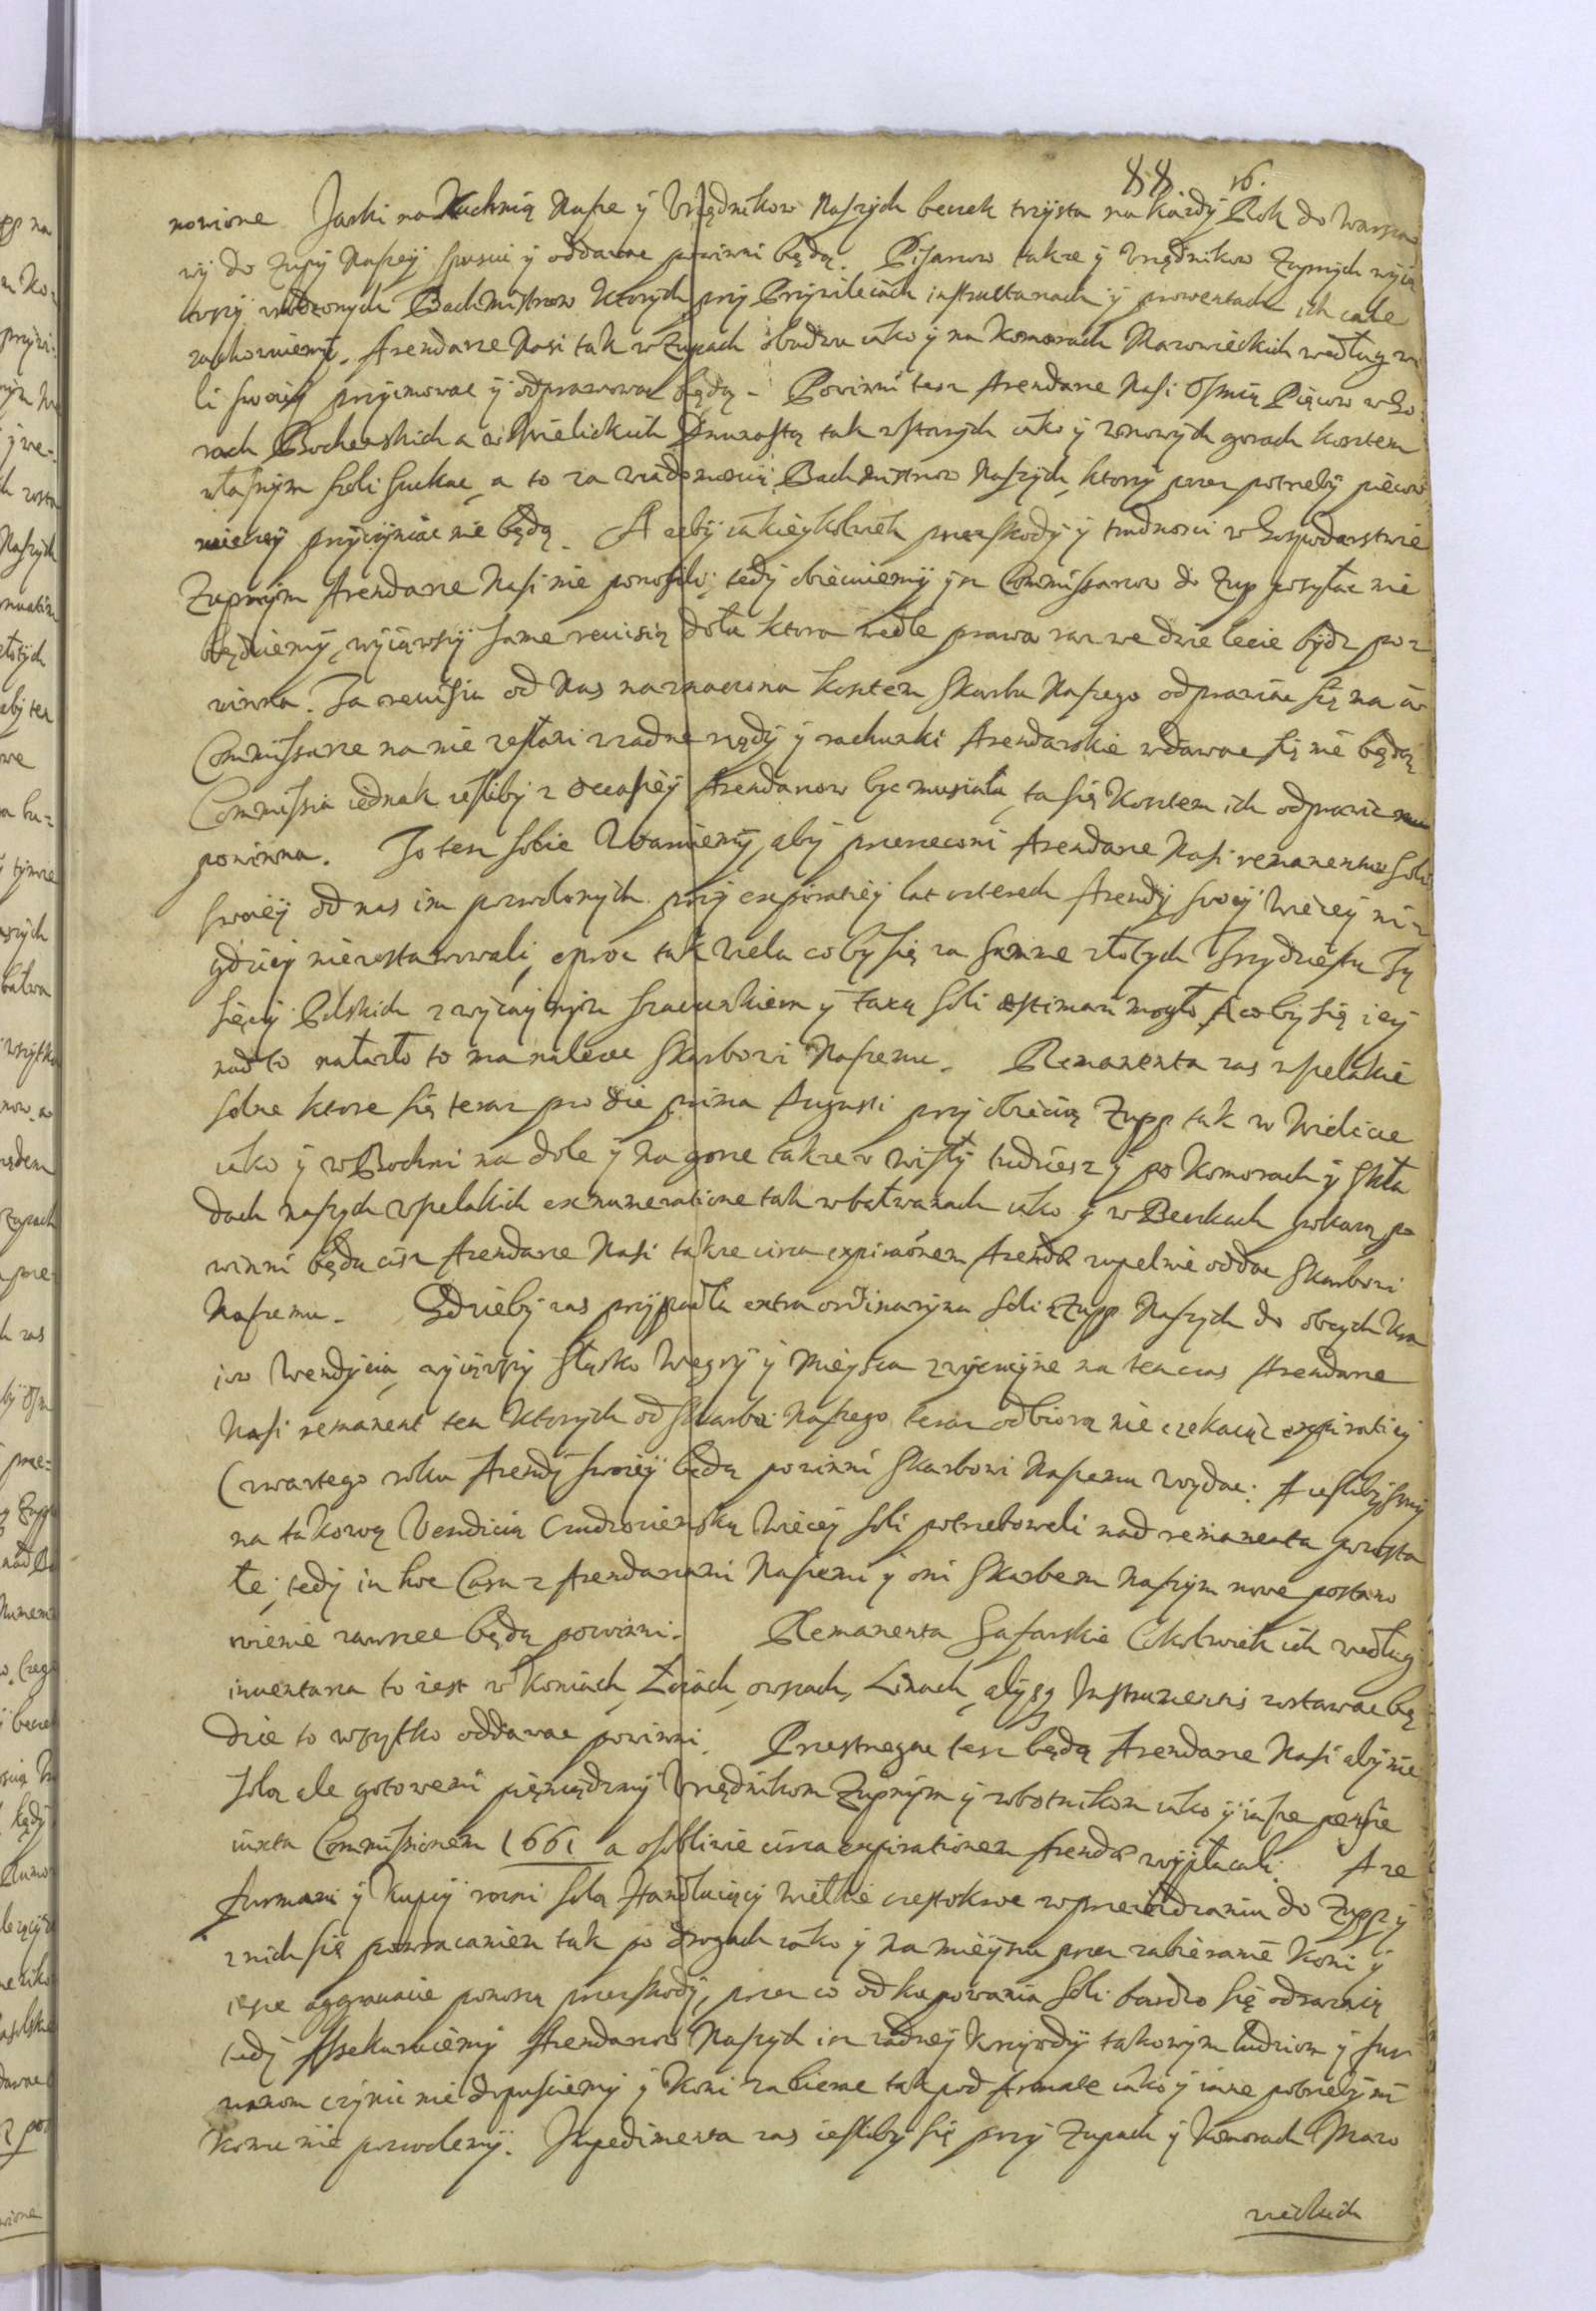 88. 16.
nowione Jaśki na Kuchnią Nasze y Urzędnikow Naszych beczek trzysta na każdy Rok do Warsza
wy do zupy Naszey spuscic y oddawac powinni będą. Pisarzow takze y Urzędnikow Zupnych wyią
wszy Bachmistrzow ktorych przy Przywileiach instructariach y prowentach ich cale
zachowuiemy. Arendarze Nasi tak w Zupach obudwu iako y na Komorach Mazowieckich według wo
li swoiey przyimowac y odprawowac będą. Powinni tesz Arendarze Nasi Osmią Piecow w Go
rach Bochenskich a w Wielickich Dwunastą tak w starych iako y w nowych gorach kosztem
własnym soli szukac, a to za wiadomoscią Bachmistrzow Naszych, ktorzy przez potrzeby piecow
wiecey przyczyniac nie będą. A zeby iakieykolwiek przeszkody y trudnosci w Gospodarstwie
Zupnym Arendarze Nasi nie ponosili; tedy obiecuiemy ym Commissarzow do Zup posyłac nie
będziemy, wyiąwszy same rewisią dołu ktora wedle prawa raz we dwie lecie bydz po
winna. Ta rewisia od Nas naznaczona kosztem Skarbu Naszego odprawiac się ma a
Commissarze na nie zesłani w zadne rządy y rachunki Arendarskie wdawac się nie będą
Commissia iednak iesliby z occasiey Arendarzow byc musiała, ta się Kosztem ich odprawic
powinna. To tesz sobie Waruiemy, aby przerzeczoni Arendarze Nasi remanentow Soli
swoiey od nas im pozwolonych przy expiratiey lat czterech Arendy swoiey wiecey ni
gdziey niezostawowali, oprocz tak wiela coby się za summe złotych Trzydziestu Ty
sięcy Polskich zwyczaynym szacunkiem y taxą soli estimari mogło. A coby się iey
nad to nalazło to ma nalezec Skarbowi Naszemu. Remanenta zas wszelakie
solne ktore się teraz pro die prima Augusti przy obięciu Zupp tak w Wieliczce
iako y w Bochni na dole y na gorze takze u wisły tudziesz y po Komorach y Skła
dach naszych wszelakich ex numeratione tak w bałwanach iako y w Beczkach pokazą po
winni będą cisz Arendarze Nasi takze circa expiraonem Arendæ zupelnie oddac Skarbowi
Naszemu. Gdzieby zas przypadła extraordinaryina soli z Zupp Naszych do obcych Kra
iow Wendycia, wyiąwszy Sląsko Węgry y Mieysca zwyczayne na tenczas Arendarze
Nasi remanent ten ktorych od Skarbu Naszego teraz odbiorą nie czekaiąc expiratiey
Czwartego roku Arendy swoiey będą powinni Skarbowi Naszemu wydac. A iesliby smy
na takową Vendicią Cudzoziemską wiecey soli potrzebowali nad remanenta pozosta
łe, tedy in hoc Casu z Arendarzami Naszemi y oni Skarbem Naszym nowe postano
wienie zawrzec będą powinni. Remanenta Szafarskie Cokolwiek ich według
inuentarza to iest w Koniach, Łoiach, owsach, Linach, alysz Instrumentis zostawac bę
dzie to wszytko oddawac powinni. Przestrzegac tesz będą Arendarze Nasi aby nie
solą ale gotowemi pieniędzmy Urzędnikom Zupnym y robotnikom iako y insze pensie
iuxta Commissionem 1661 a osobliwie circa expirationem Arendæ wypłacali. A ze
furmani y Kupcy rozni solą Handluiący wielkie czestokroc w przeiezdzaniu do Zupp y
z nich się powracaniem tak po drogach iako y na mieyscu przez zabieranie Koni y
insze aggrauacie ponoszą przeszkody, przez co od kupowania Soli bardzo się odrazaią
tedy Assekuruiemy Arendarzow Naszych isz zadney krzywdy takowym ludziom y fur
manom czynic nie dopusciemy y Koni zabierac tak pod Armate iako y inne potrzeby ni
komu nie pozwolemy. Impedimenta zas iesliby się przy Zupach y Komorach Mazo
wieckich